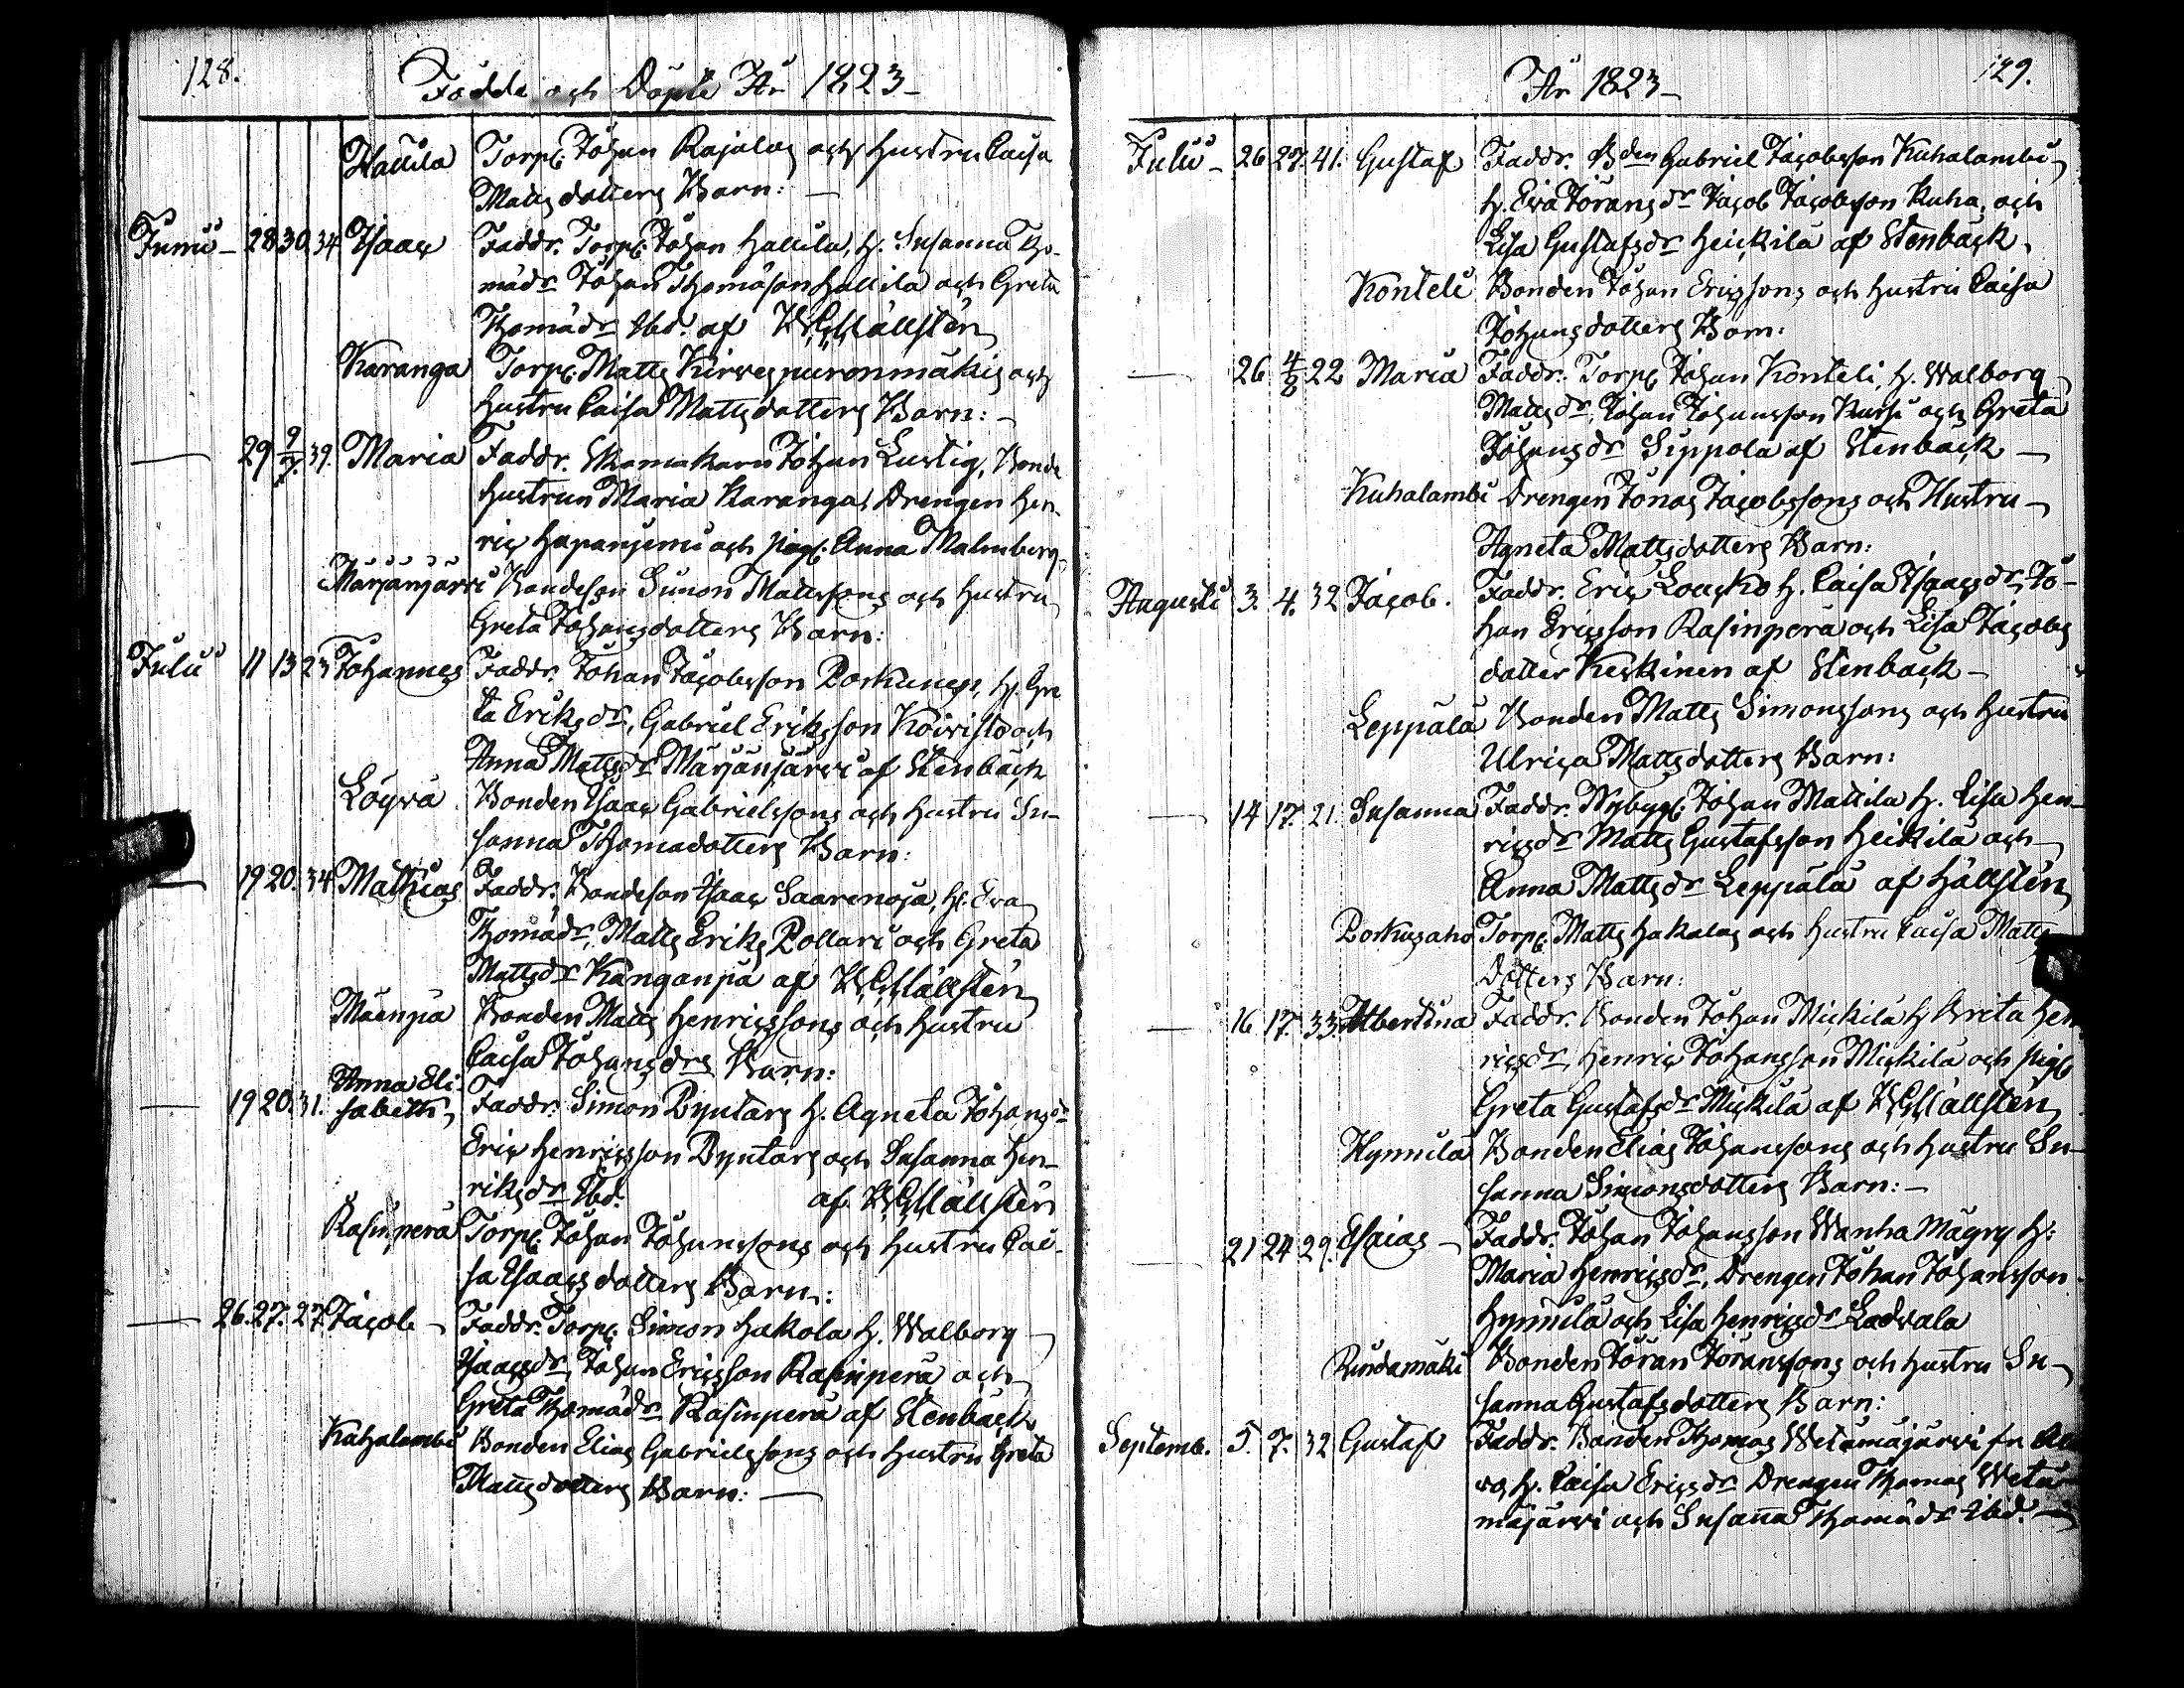 128.
Födde och Döpte År 1823
Hallila Torp. Johan Rajalas och Hustru Caisa
Mattsdotters Barn:
Junii 28 30 34 Isaac Faddr. Torp. Johan Hallila, H. Susanna Tho-
mædr Johan Thomason Hallila och Greta
Thomædr Ibd. af Hällstén
Karanga Torp. Matts Kirvespuronmäkis och
Hustru Caisa Mattsdotters Barn:
29 9/7 39. Maria Faddr. Skomakarn Johan Lustig, Bonde
Hustrun Maria Karanga, Drengen Hen-
ric Hapanjemi och pig. Anna Malmberg
Märjänjärvi Bondeson Simon Mattssons och Hustru
Greta Johansdotters Barn:
Julii 11 13 23 Johannes Faddr. Johan Jacobsson Porkunen, H. Gre
ta Eriksdr, Gabriel Eriksson Koivisto och
Anna Mattsdr Märjänjärvi af Stenbäck
Löyvä Bonden Isaac Gabrielssons och Hustru Su-
sanna Thomadotters Barn:
19 20. 34 Mathias Faddr. Bondeson Isaac Saarenoja, H. Eva
Thomædr, Matts Eriks Pollari och Greta
Mattsdr Kanganpä af Hällstén
Mäenpä Bonden Matts Henricssons och Hustru
Caisa Johansdrs Barn:
19 20. 31. Anna Eli-
sabeth Faddr. Simon Pyntars H. Agneta Johansdr
Eric Henricsson Pyntars och Susanna Hen-
riksdr Ibd. af Hällstén
Rasinperä Torp. Johan Johanssons och Hustru Cai-
sa Isaacsdotters Barn:
26. 27. 27 Jacob Faddr. Torp. Simon Hakola H. Walborg
Isaacsdr, Johan Ericsson Rasinperä och
Greta Thomædr Rasinperä af Stenbäck
Kuhalambi Bonden Elias Gabrielssons och Hustru Greta
Mattsdotters Barn:
År 1823
129.
Julii 26 27. 41. Gustaf Faddr. Bden Gabriel Jacobsson Kuhalambi
H. Eva Göransdr Jacob Jacobsson Kuha, och
Lisa Gustafsdr Heickilä af Stenbäck
Konteli Bonden Johan Ericssons och Hustru Caisa
Johansdotters Barn:
26 4/8 22 Maria Faddr. Torp. Johan Konteli, H. Walborg
Mattsdr, Johan Johansson och Greta
Johansdr Sippola af Stenbäck
Kuhalambi Drengen Jonas Jacobssons och Hustru
Agneta Mattsdotters Barn:
Augusti 3. 4. 32 Jacob. Faddr. Eric Loucko H. Caisa Isaacsdr, Jo-
han Ericsson Rasinperä och Lisa Jacobs
dotter Keskinen af Stenbäck
Leppälä Bonden Matts Simonssons och Hustru
Ulrica Mattsdotters Barn:
14 17. 21. Susanna Faddr. Nybyg. Johan Mattila H. Lisa Hen-
ricsdr Matts Gustafsson Heikilä och
Anna Mattsdr Leppälä af Hällstén
Porkusaho Torp. Matts Hakalas och Hustru Caisa Matts
dotters Barn:
16 17. 33. Albertina Faddr. Bonden Johan Mickilä H Brita Hen
ricsdr, Henric Johansson Mickilä och pig.
Greta Gustafsdr Mickilä af Hällstén
Hynnilä Bonden Elias Johanssons och Hustru Su-
sanna Simonsdotters Barn:
21 24 29. Esaias Faddr. Johan Johansson Wanha Mägry H:
Maria Henricsdr, Drengen Johan Johansson
Hynnilä och Lisa Henricsdr Ladvala
Rindamäki Bonden Göran Göranssons och Hustru Su-
sanna Gustafsdotters Barn:
Septemb. 5. 7. 32 Gustaf Faddr. Bonden Thomas Wetämäjärvi fr. Ala
vo, H. Caisa Ericsdr Drengen Thomas Wetä
mäjärvi och Susanna Thomædr Ibd.